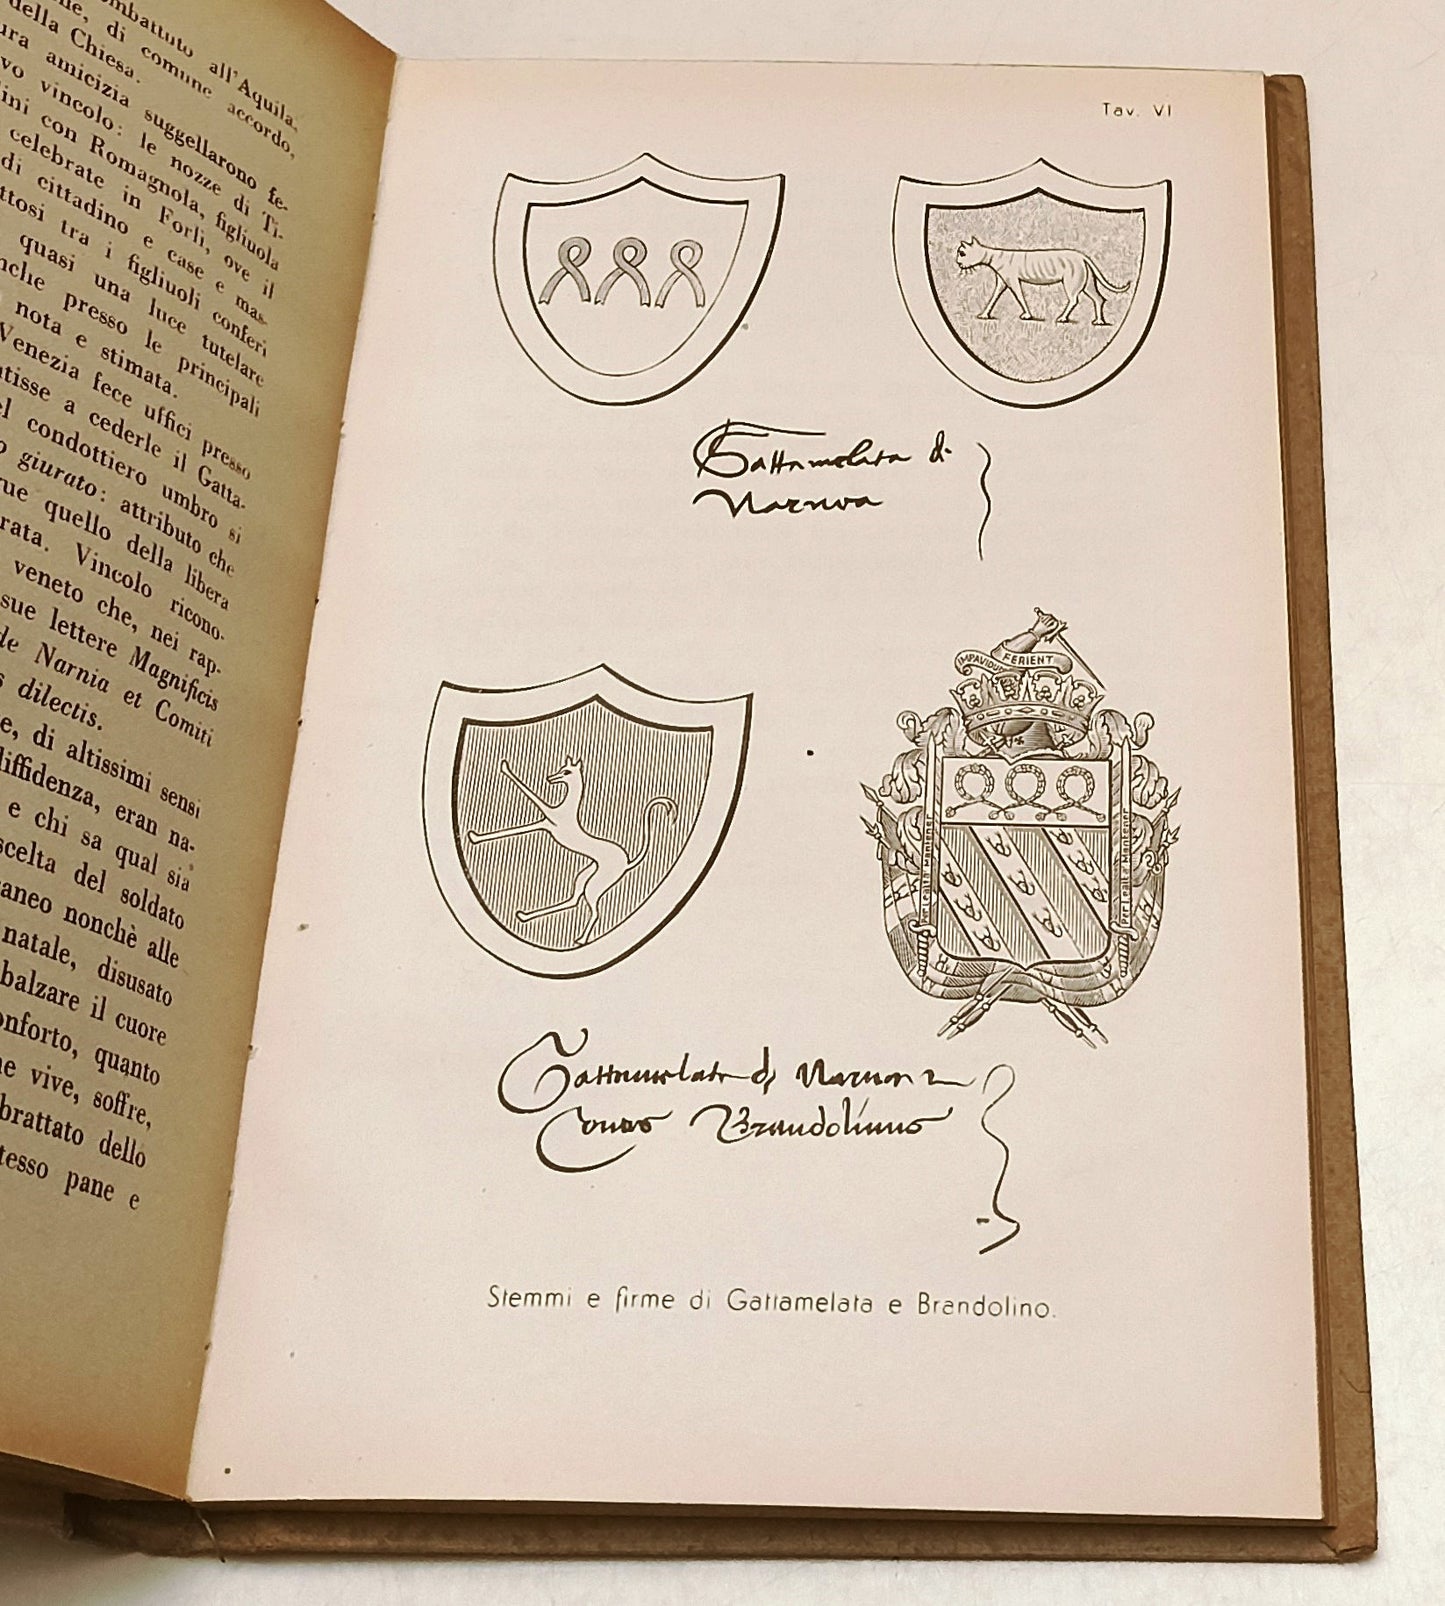 ombattuto all'Aquila,
di comune accordo,
della Chiesa.
ura amicizia suggellarono fe-
vo vincolo: le nozze di Ti-
ini con Romagnola, figliuola
celebrate in Forlì, ove il
di cittadino e case e mas-
ttosi tra i figliuoli conferì
quasi una luce tutelare
nche presso le principali
nota e stimata.
Venezia fece uffici presso
tisse a cederle il Gatta-
el condottiero umbro si
o giurato: attributo che
rue quello della libera
rata. Vincolo ricono-
veneto che, nei rap-
sue lettere Magnificis
de Narnia et Comiti
s dilectis.
e, di altissimi sensi
diffidenza, eran na-
e chi sa qual sia
scelta del soldato
aneo nonchè alle
natale, disusato
balzare il cuore
onforto, quanto
he vive, soffre,
brattato dello
tesso pane e
Tav. VI
Gattamelata de
Narnia
IMPAVIDUM FERIENT
Per Lealtà Mantener
Per Lealtà Mantener
Gattamelata de
Comes Brandolinus
Stemmi e firme di Gattamelata e Brandolino.